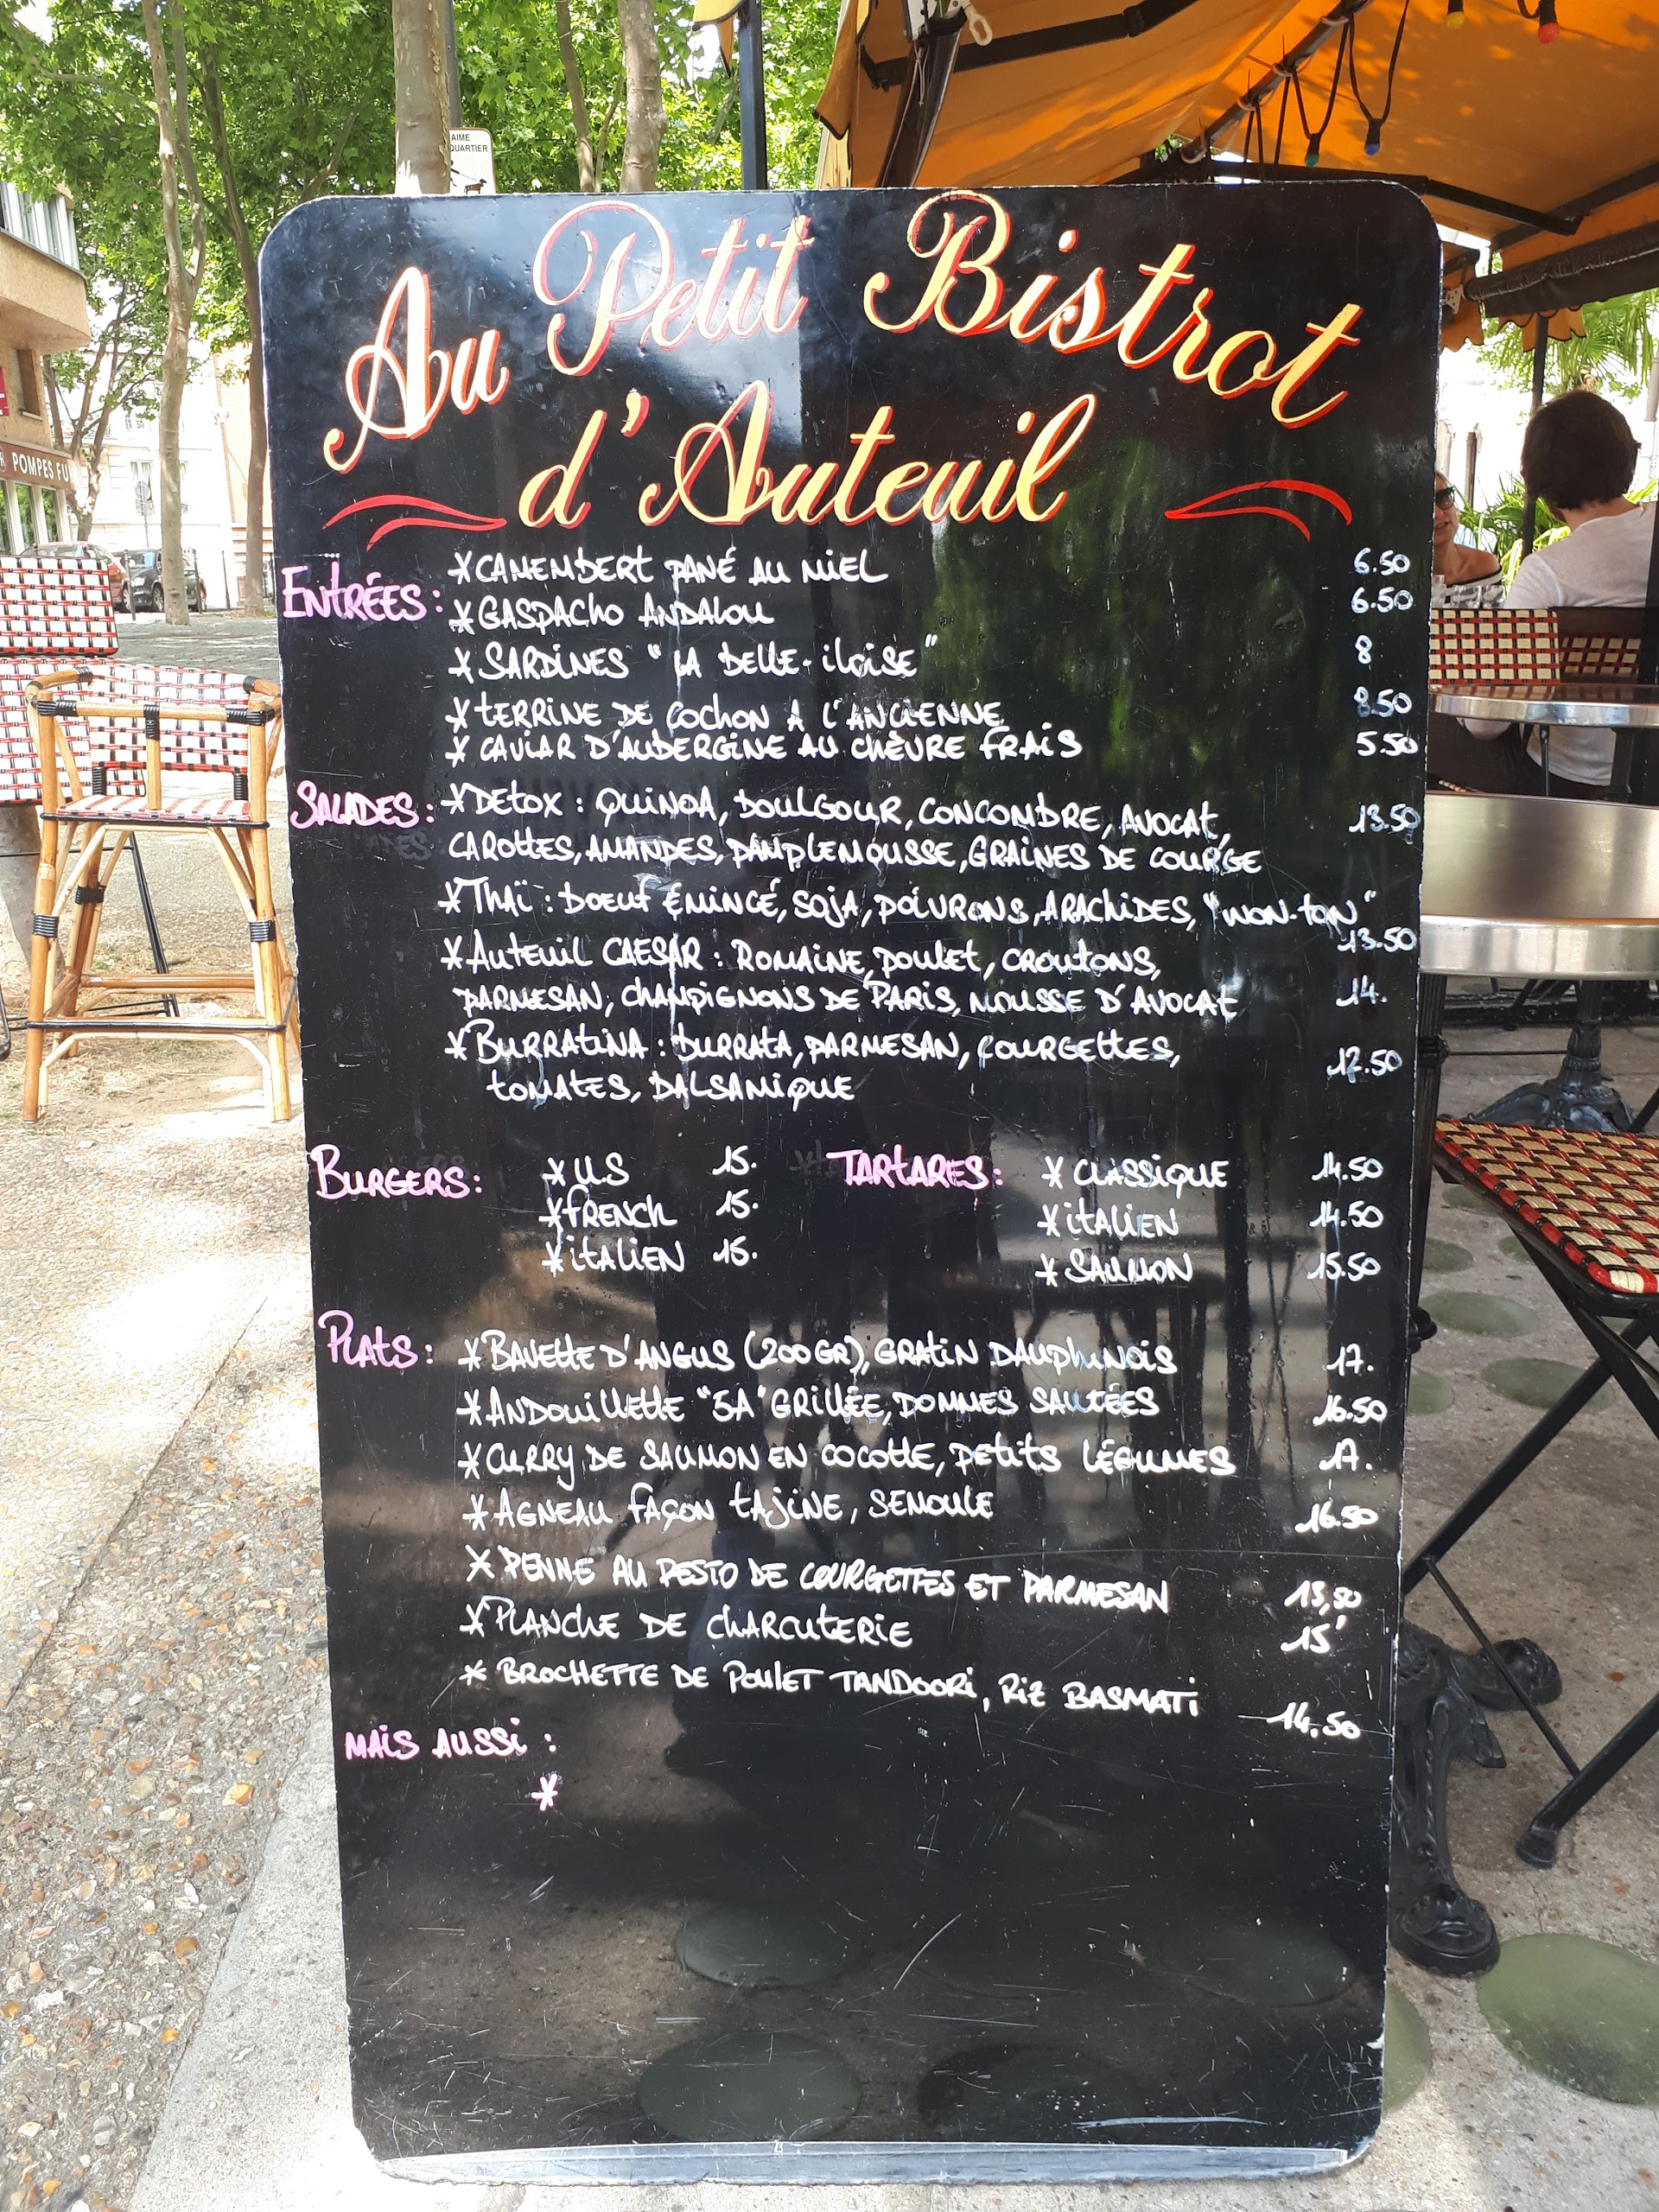 AIME
QUARTIER
POMPES FU
Au Petit Bistrot
d'Auteuil
ENTRÉES : *CAMEMBERT PANÉ AU MIEL 6.50
*GASPACHO ANDALOU 6.50
*SARDINES "LA BELLE-ILOISE" 8
*TERRINE DE COCHON A L'ANCIENNE 8.50
*CAVIAR D'AUBERGINE AU CHÈVRE FRAIS 5.50
SALADES : *DETOX : QUINOA, BOULGOUR, CONCOMBRE, AVOCAT, 13.50
CAROTTES, AMANDES, PAMPLEMOUSSE, GRAINES DE COURGE
*THAÏ : BOEUF ÉMINCÉ, SOJA, POIVRONS, ARACHIDES, "WON-TON"
13.50
*AUTEUIL CAESAR : ROMAINE, POULET, CROUTONS,
PARMESAN, CHAMPIGNONS DE PARIS, MOUSSE D'AVOCAT 14.
*BURRATINA : BURRATA, PARMESAN, COURGETTES, 12.50
TOMATES, BALSAMIQUE
BURGERS : *US 15. TARTARES : *CLASSIQUE 14.50
*FRENCH 15. *ITALIEN 14.50
*ITALIEN 15. *SAUMON 15.50
PLATS : *BAVETTE D'ANGUS (200GR), GRATIN DAUPHINOIS 17.
*ANDOUILLETTE "5A" GRILLÉE, POMMES SAUTÉES 16.50
*CURRY DE SAUMON EN COCOTTE, PETITS LÉGUMES 17.
*AGNEAU FAÇON TAJINE, SEMOULE 16.50
*PENNE AU PESTO DE COURGETTES ET PARMESAN 13,50
*PLANCHE DE CHARCUTERIE 15'
*BROCHETTE DE POULET TANDOORI, RIZ BASMATI 14,50
MAIS AUSSI :
*